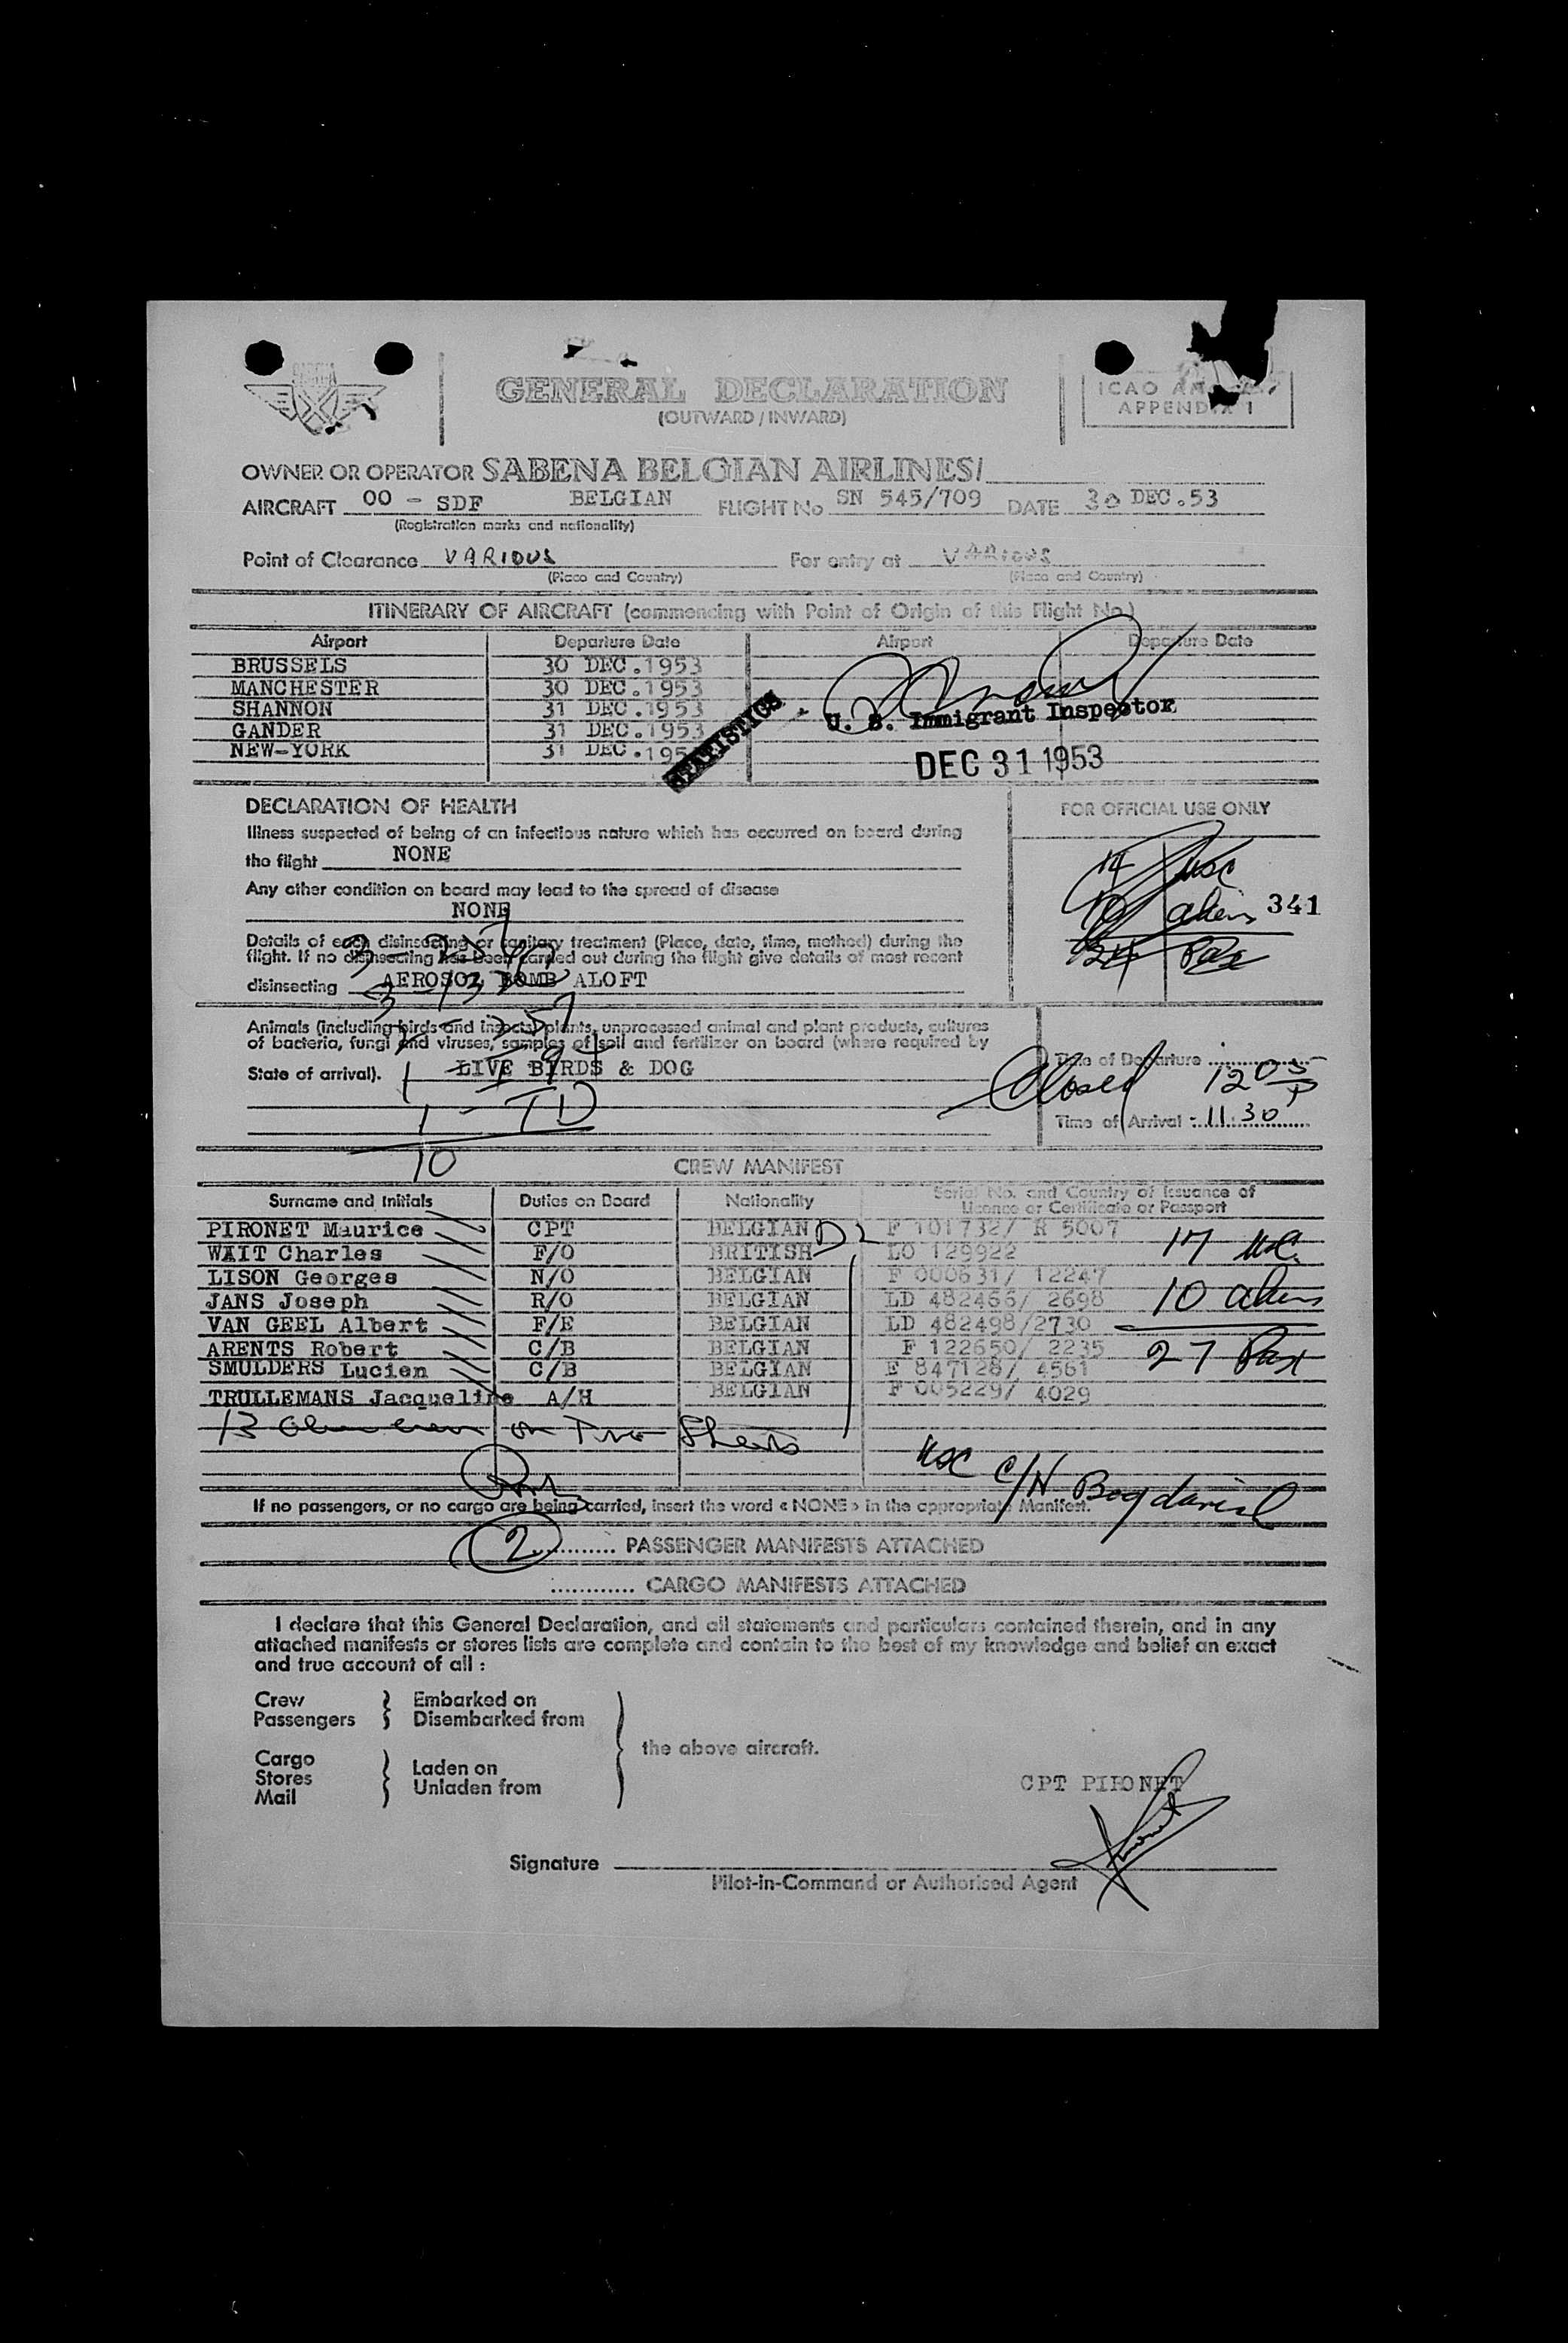 SABENA
GENERAL DECLARATION
(OUTWARD / INWARD)
ICAO
APPENDIX 1
OWNER OR OPERATOR SABENA BELGIAN AIRLINES/
AIRCRAFT OO - SDF BELGIAN FLIGHT No SN 545/709 DATE 30 DEC.53
(Registration marks and nationality)
Point of Clearance VARIOUS For entry at VARIOUS
(Place and Country) (Place and Country)
ITINERARY OF AIRCRAFT (commencing with Point of Origin of this Flight No.)
Airport Departure Date Airport Departure Date
BRUSSELS 30 DEC.1953
MANCHESTER 30 DEC.1953
SHANNON 31 DEC.1953
GANDER 31 DEC.1953
NEW-YORK 31 DEC.195
STATISTICS
U. S. Immigrant Inspector
DEC 31 1953
DECLARATION OF HEALTH
FOR OFFICIAL USE ONLY
Illness suspected of being of an infectious nature which has occurred on board during
the flight NONE
Any other condition on board may lead to the spread of disease
NONE
Details of each disinsecting or sanitary treatment (Place, date, time, method) during the
flight. If no disinsecting has been carried out during the flight give details of most recent
disinsecting AEROSOL BOMB ALOFT
14 USC
10 aliens 341
24 Pax
Animals (including birds and insects) plants, unprocessed animal and plant products, cultures
of bacteria, fungi and viruses, samples of soil and fertilizer on board (where required by
State of arrival). LIVE BIRDS & DOG
1 - TD
10
Time of Departure
Closed 1205 P
Time of Arrival - 11.30
CREW MANIFEST
Surname and Initials Duties on Board Nationality Serial No. and Country of Issuance of
Licence or Certificate or Passport
PIRONET Maurice CPT BELGIAN D2 F 101732/ R 5007
WAIT Charles F/O BRITISH LO 129922
LISON Georges N/O BELGIAN F 000631/ 12247
JANS Joseph R/O BELGIAN LD 482466/ 2698
VAN GEEL Albert F/E BELGIAN LD 482498/2730
ARENTS Robert C/B BELGIAN F 122650/ 2235
SMULDERS Lucien C/B BELGIAN E 847128/ 4561
TRULLEMANS Jacqueline A/H BELGIAN F 005229/ 4029
17 USC.
10 aliens
27 Pax
13 on Two Sheets
USC C/N Bogdavich
If no passengers, or no cargo are being carried, insert the word « NONE » in the appropriate Manifest.
2 ............ PASSENGER MANIFESTS ATTACHED
............ CARGO MANIFESTS ATTACHED
I declare that this General Declaration, and all statements and particulars contained therein, and in any
attached manifests or stores lists are complete and contain to the best of my knowledge and belief an exact
and true account of all :
Crew Embarked on
Passengers Disembarked from
the above aircraft.
Cargo Laden on
Stores Unladen from
Mail
CPT PIRONET
Signature
Pilot-in-Command or Authorised Agent